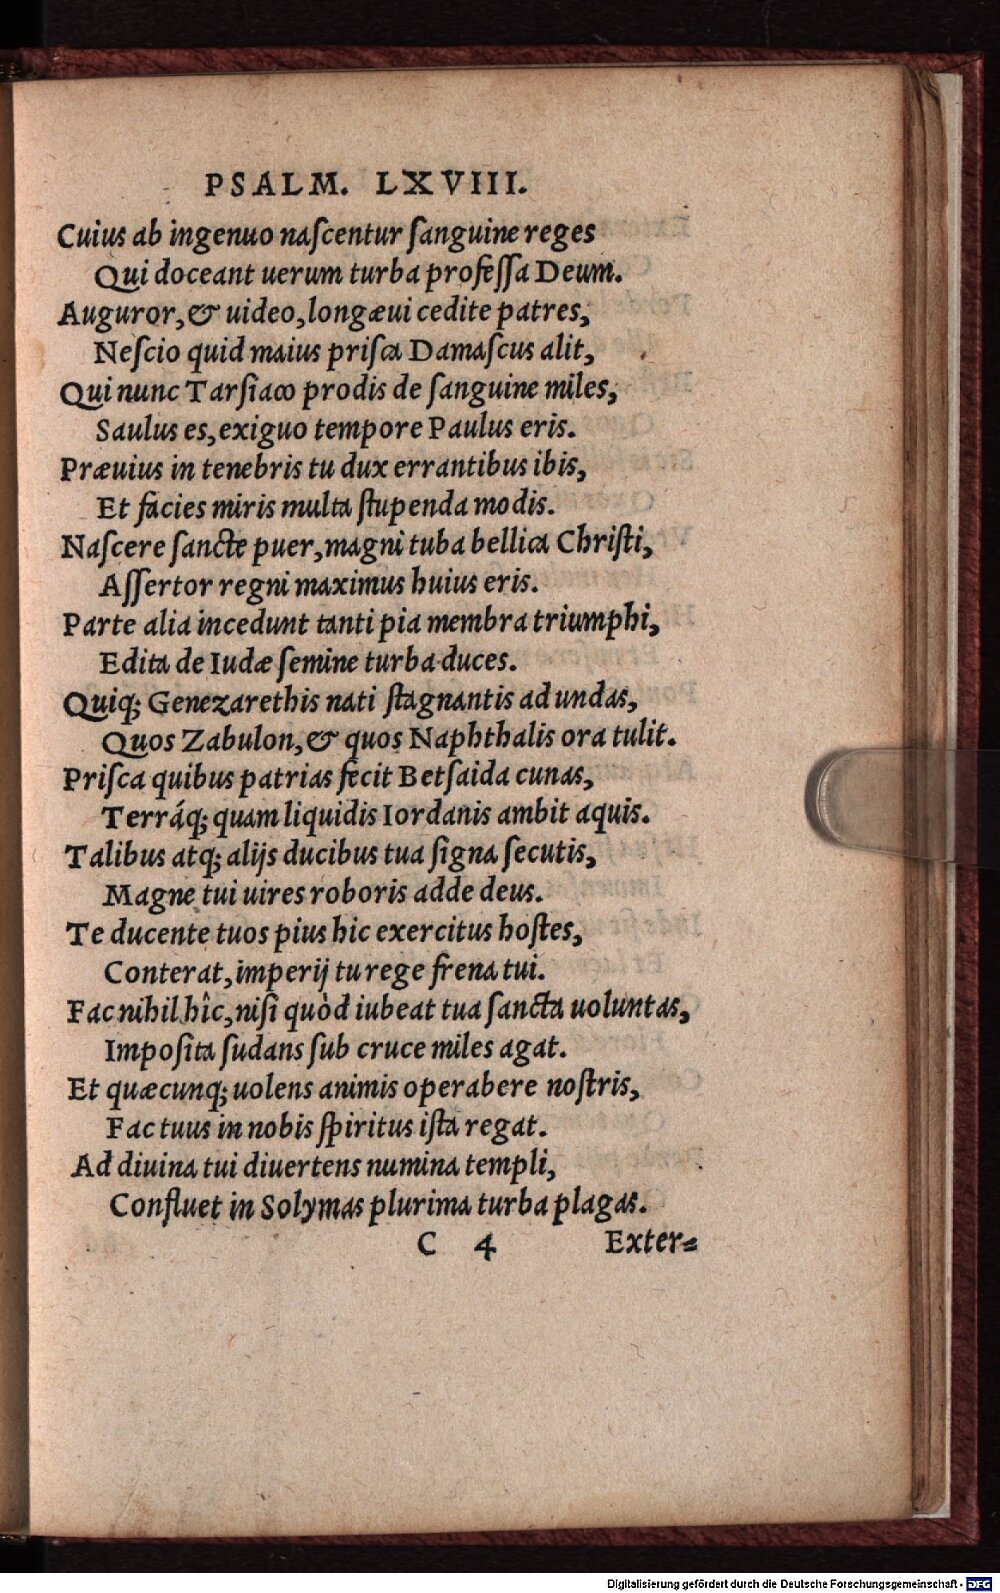 PSALM. LXVIII.
Cuius ab ingenuo naſcentur ſanguine reges
Qui doceant uerum turba profeſſa Deum.
Auguror, & uideo, longæui cedite patres,
Neſcio quid maius priſca Damaſcus alit,
Qui nunc Tarſiaco prodis de ſanguine miles,
Saulus es, exiguo tempore Paulus eris.
Præuius in tenebris tu dux errantibus ibis,
Et facies miris multa ſtupenda modis.
Naſcere ſancte puer, magni tuba bellica Chriſti,
Aſſertor regni maximus huius eris.
Parte alia incedunt tanti pia membra triumphi,
Edita de Iudæ ſemine turba duces.
Quiq; Genezarethis nati ſtagnantis ad undas,
Quos Zabulon, & quos Naphthalis ora tulit.
Priſca quibus patrias fecit Betſaida cunas,
Terráq; quam liquidis Iordanis ambit aquis.
Talibus atq; alijs ducibus tua ſigna ſecutis,
Magne tui uires roboris adde deus.
Te ducente tuos pius hic exercitus hoſtes,
Conterat, imperij tu rege frena tui.
Fac nihil hîc, niſi quòd iubeat tua ſancta uoluntas,
Impoſita ſudans ſub cruce miles agat.
Et quæcunq; uolens animis operabere noſtris,
Fac tuus in nobis ſpiritus iſta regat.
Ad diuina tui diuertens numina templi,
Confluet in Solymas plurima turba plagas.
C 4 Exter-
Digitalisierung gefördert durch die Deutsche Forschungsgemeinschaft - DFG